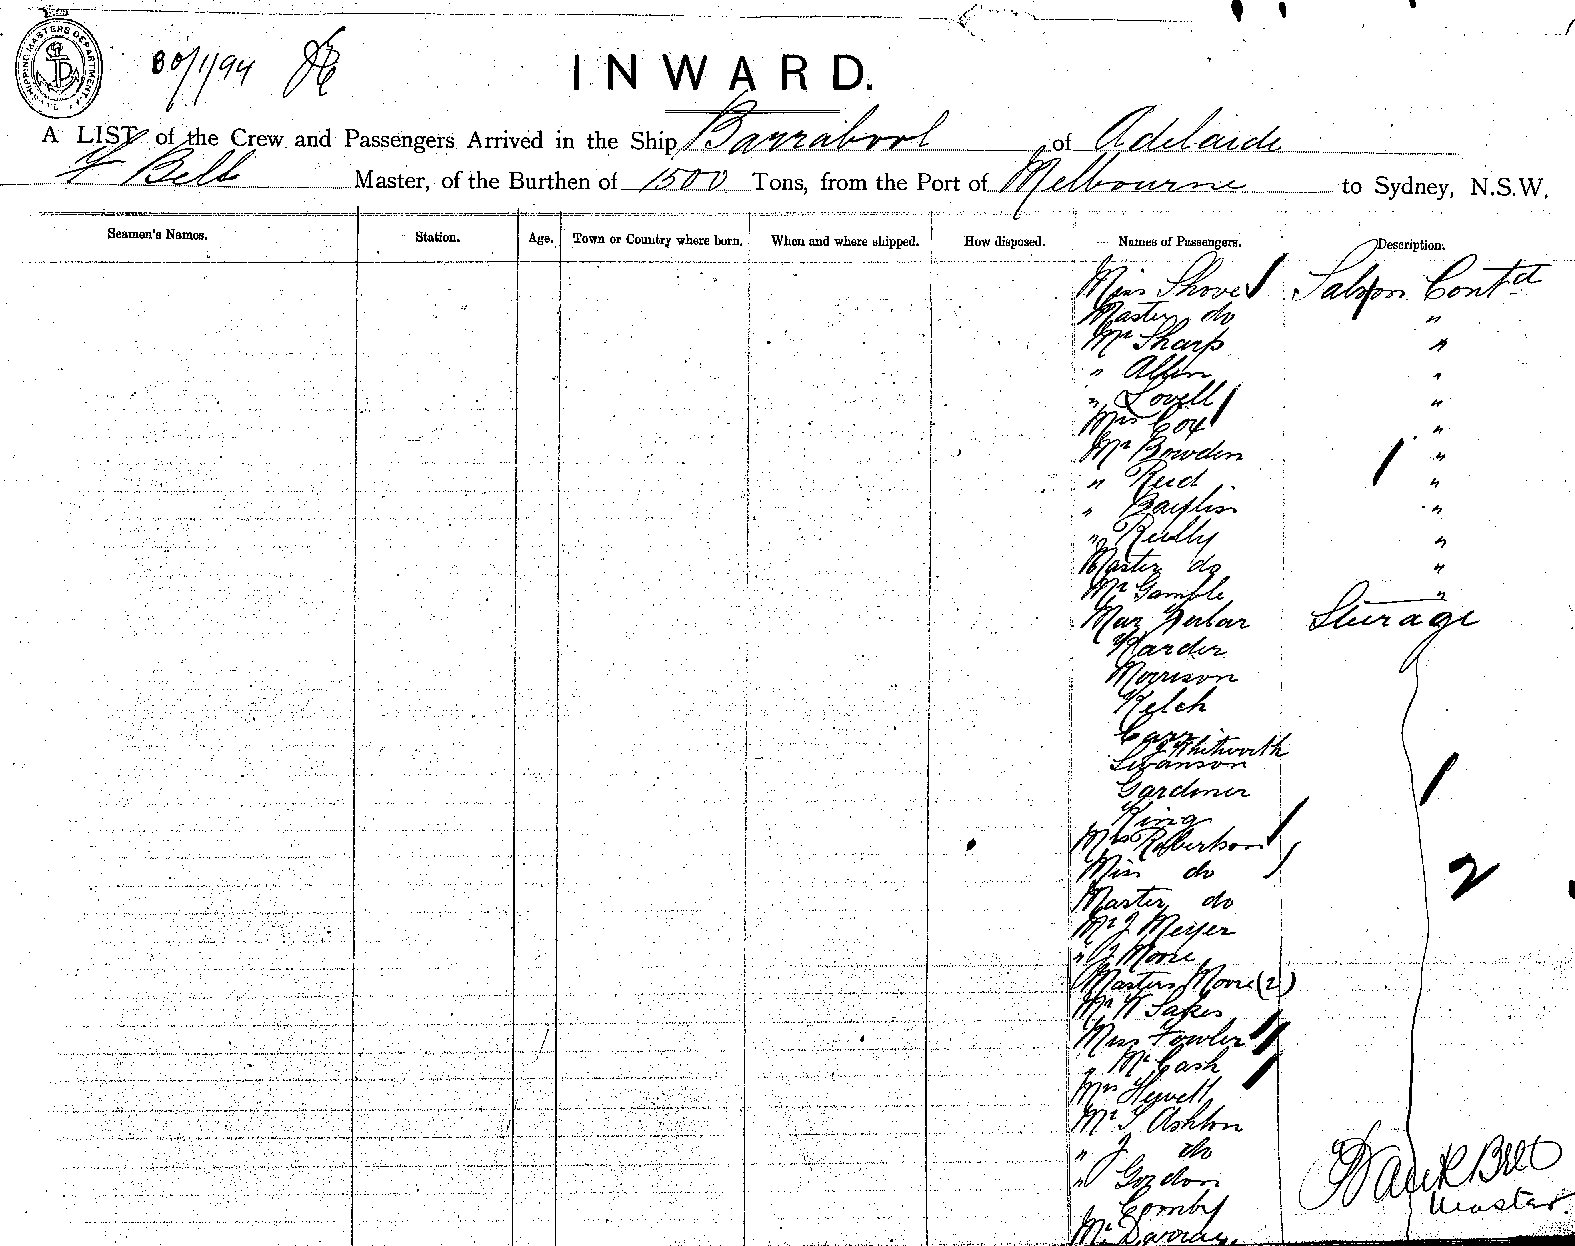 SHIPPING MASTERS DEPARTMENT
30/1/94
INWARD.
A LIST of the Crew and Passengers Arrived in the Ship Barrabool of Adelaide
F Bell Master, of the Burthen of 1500 Tons, from the Port of Melbourne to Sydney, N.S.W.
Seamen's Names. Station. Age. Town or Country where born. When and where shipped. How disposed. Names of Passengers. Description.
Miss Shovel Saloon Contd
Master do "
Mr Sharp "
" Allen "
" Lovell "
Mrs Cox "
Mr Bowden "
" Reid "
" "
" Reilly "
Master do "
Mr Gamble "
Steerage
Harder
Morrison
Kelch
Carr
Whitworth
Swanson
Gardiner
King
Mrs Robertson
Miss do
2
Master do
Mr J Meyer
" Moore
Masters Moore (2)
Mr
Miss Fowler
" McCash
Mrs Hewett
Mr S Ashton
" J do
" Gordon
Cornby
Mr
Frank Bell
Master.